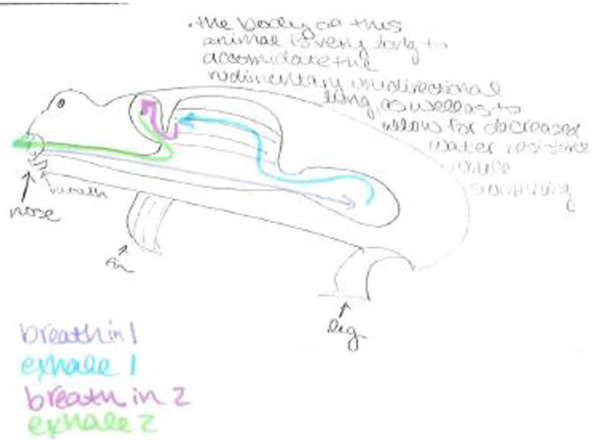 • the body of this
animal is very long to
accomidate the
rudimentary unidirectional
lung, as well as to
allow for decreased
water resistence
while
swimming
nose
mouth
fin
leg
breath in 1
exhale 1
breath in 2
exhale 2